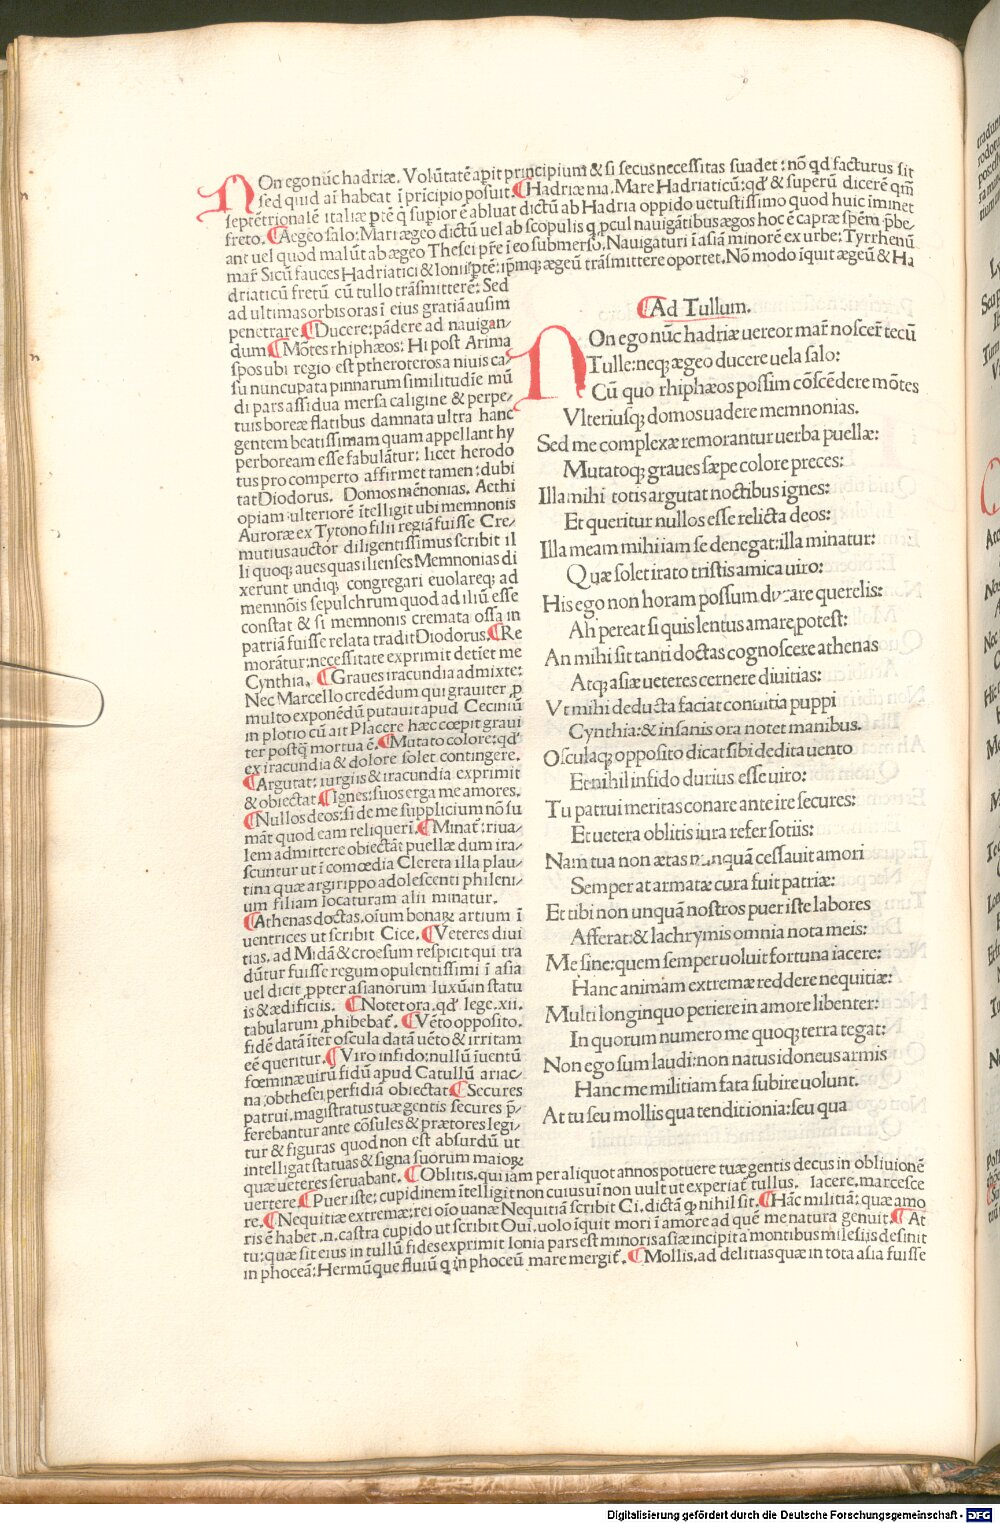 NOn ego nūc hadriæ. Volūtatē apit principium & si secus necessitas suadet: nō qd facturus sit
sed quid añ habeat ī pricipio posuit. ¶Hadriæ ma. Mare Hadriaticū: qd' & superū dicerē qm̄
septētrionalē italiæ ptē q supior ē abluat dictū ab Hadria oppido uetustissimo quod huic iminet
freto. ¶Aegeo salo: Mari ægeo dictū uel ab scopulis q pcul nauigātibus ægos hoc ē capræ spēm p̱be⸗
ant uel quod malūt ab ægeo Thesei pr̄e ī eo submerso, Nauigaturi ī asiā minorē ex urbe: Tyrrhenū
mar̄ Sicū fauces Hadriatici & Ionii ptē: ip̄mq; ægeū trāsmittere oportet. Nō modo iquit ægeū & Ha
driaticū fretū cū tullo trāsmitterē: Sed
ad ultimas orbis oras ī eius gratiā ausim
penetrare. ¶Ducere: pādere ad nauigan⸗
dum ¶Mōtes rhiphæos: Hi post Arima
spos ubi regio est ptheroterosa niuis ca⸗
su nuncupata pinnarum similitudīe mū
di pars assidua mersa caligine & perpe⸗
tuis boreæ flatibus damnata ultra hanc
gentem beatissimam quam appellant hy
perboream esse fabulātur: licet herodo
tus pro comperto affirmet tamen: dubi
tat Diodorus. Domos mēnonias. Aethi
opiam ulteriorē ītelligit ubi memnonis
Auroræ ex Tytono filii regiā fuisse Cre⸗
mutius auctor diligentissimus scribit il
li quoq; aues quas ilienses Memnonias di
xerunt undiq; congregari euolareq; ad
memnōis sepulchrum quod ad iliū esse
constat & si memnonis cremata ossa in
patriā fuisse relata tradit Diodorus. ¶Re
morātur: necessitate exprimit detiēt me
Cynthia. ¶Graues iracundia admixte:
Nec Marcello credēdum qui grauiter p̱
multo exponēdū putauit apud Ceciniū
in plotio cū ait Placere hæc cœpit graui
ter postq̄ mortua ē. ¶Mutato colore: qd'
ex iracundia & dolore solet contingere.
¶Argutat: iurgiis & iracundia exprimit
& obiectat ¶Ignes: suos erga me amores.
¶Nullos deos: si de me supplicium nō su
māt quod eam reliquerī. ¶Minat̄: riua⸗
lem admittere obiectāt puellæ dum ira⸗
scuntur ut ī comœdia Clereta illa plau⸗
tina quæ argirippo adolescenti phileni⸗
um filiam locaturam alii minatur.
¶Athenas doctas. oium bonaꝝ artium ī
uentrices ut scribit Cice. ¶Veteres diui
tias. ad Midā & croesum respicit qui tra
dūtur fuisse regum opulentissimi ī asia
uel dicit ppter asianorum luxū in statu
is & ædificiis. ¶Notet ora. qd' lege. xii.
tabularum p̱hibebat̄. ¶Vēto opposito.
fidē datā iter oscula datā uēto & irritam
eē queritur. ¶Viro infido: nullū iuentū
fœminæ uirū fidū apud Catullū ariac⸗
na; ob thesei perfidiā obiectat ¶Secures
patrui. magistratus tuæ gentis secures p̄⸗
ferebantur ante cōsules & prætores legi⸗
tur & figuras quod non est absurdū ut
intelligat statuas & signa suorum maioꝝ
quæ ueteres seruabant. ¶Oblitis. qui iam per aliquot annos potuere tuæ gentis decus in obliuionē
uertere. ¶Puer iste: cupidinem ītelligit non cuius uī non uult ut experiat̄ tullus. Iacere. marcesce
re. ¶Nequitiæ extremæ: rei oīo uanæ Nequitiā scribit Ci. dictā q̄ nihil sit. ¶Hāc militiā: quæ amo
ris ē habet .n. castra cupido ut scribit Oui. uolo iquit mori ī amore ad quē me natura genuit. ¶At
tu: quæ sit eius in tullū fides exprimit Ionia pars est minoris asiæ incipit a montibus milesiis desinit
in phoceā: Hermū que fluiū q in phoceū mare mergit̄. ¶Mollis. ad delitias quæ in tota asia fuisse
¶Ad Tullum.
NOn ego nūc hadriæ uereor mar̄ noscer̄ tecū
Tulle: neq; ægeo ducere uela salo:
Cū quo rhiphæos possim cōscēdere mōtes
Vlteriusq; domos uadere memnonias.
Sed me complexæ remorantur uerba puellæ:
Mutatoq; graues sæpe colore preces:
Illa mihi totis argutat noctibus ignes:
Et queritur nullos esse relicta deos:
Illa meam mihi iam se denegat: illa minatur:
Quæ solet irato tristis amica uiro:
His ego non horam possum durare querelis:
Ah pereat si quis lentus amare potest:
An mihi sit tanti doctas cognoscere athenas
Atq; asiæ ueteres cernere diuitias:
Vt mihi deducta faciat conuitia puppi
Cynthia: & insanis ora notet manibus.
Osculaq; opposito dicat sibi dedita uento
Et nihil infido durius esse uiro:
Tu patrui meritas conare ante ire secures:
Et uetera oblitis iura refer sotiis:
Nam tua non ætas nunquā cessauit amori
Semper at armatæ cura fuit patriæ:
Et tibi non unquā nostros puer iste labores
Afferat: & lachrymis omnia nota meis:
Me sine: quem semper uoluit fortuna iacere:
Hanc animam extremæ reddere nequitiæ:
Multi longinquo periere in amore libenter:
In quorum numero me quoq; terra tegat:
Non ego sum laudi: non natus idoneus armis
Hanc me militiam fata subire uolunt.
At tu seu mollis qua tendit ionia: seu qua
Digitalisierung gefördert durch die Deutsche Forschungsgemeinschaft - DFG